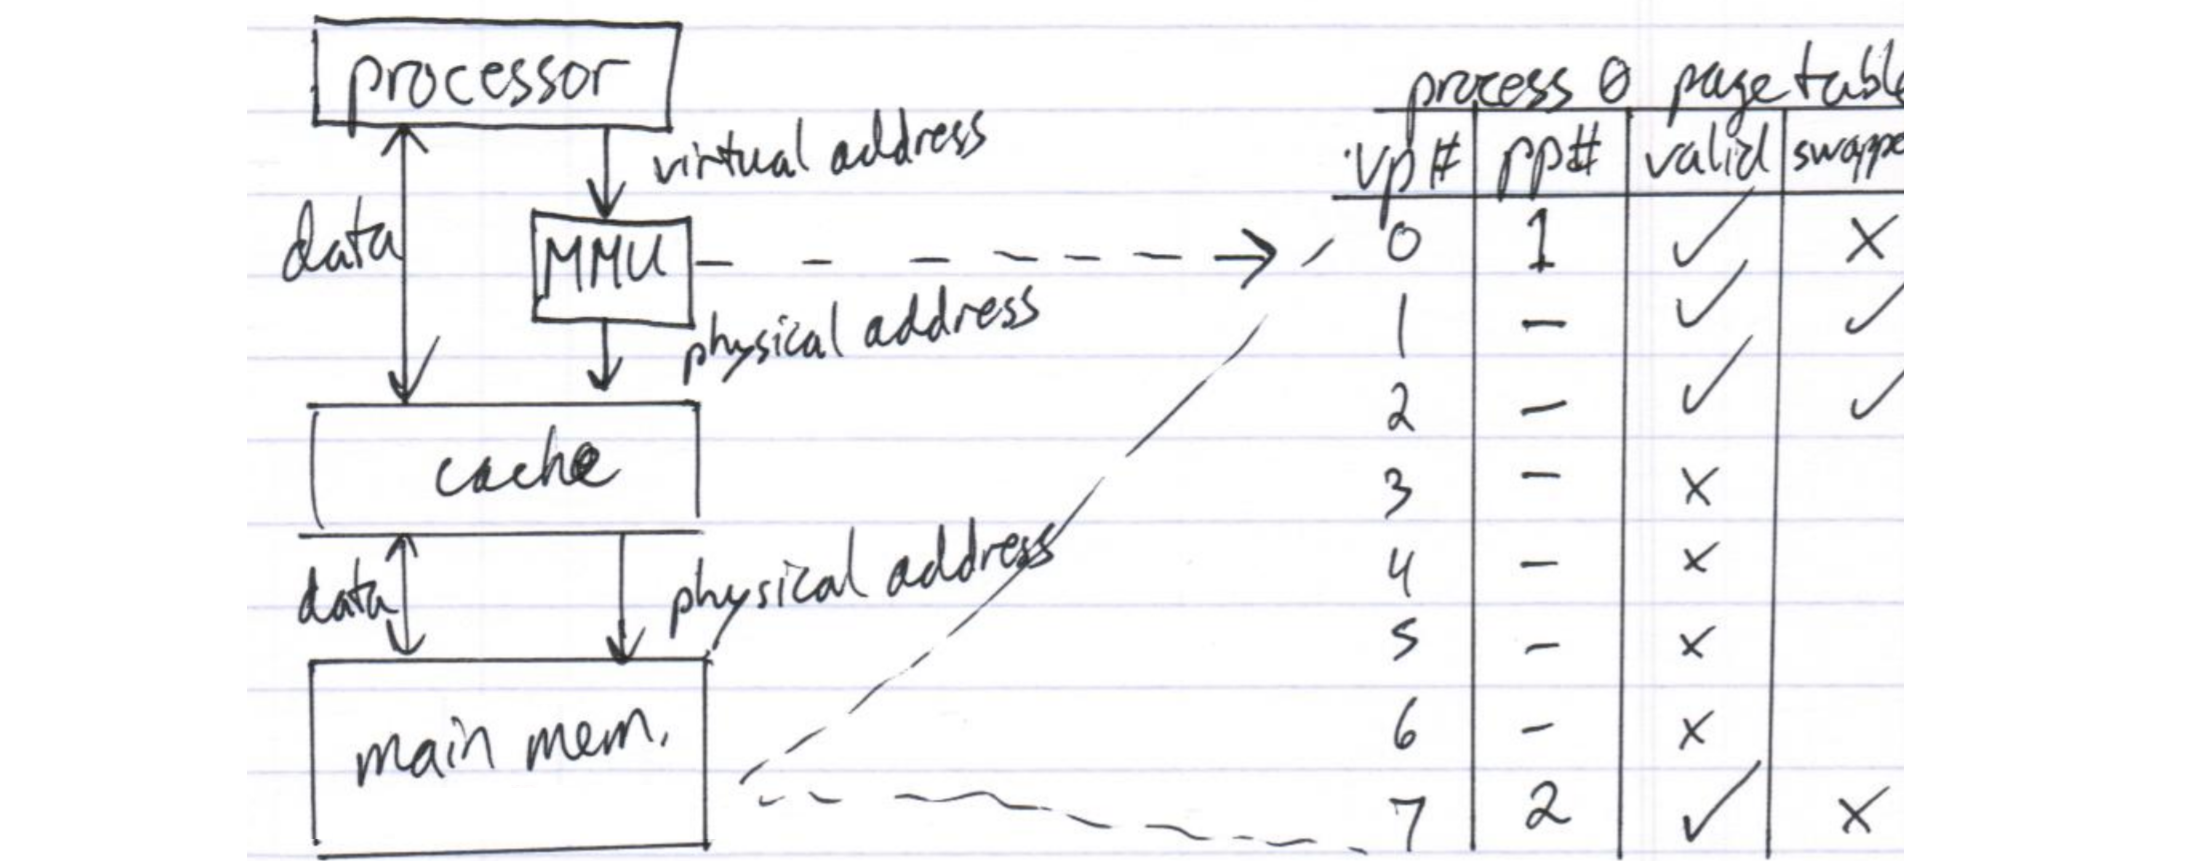 processor
virtual address
data
MMU
physical address
cache
data
physical address
main mem.
process 0 page table
vp# pp# valid swappe
0 1 ✓ ✗
1 – ✓ ✓
2 – ✓ ✓
3 – ✗
4 – ✗
5 – ✗
6 – ✗
7 2 ✓ ✗